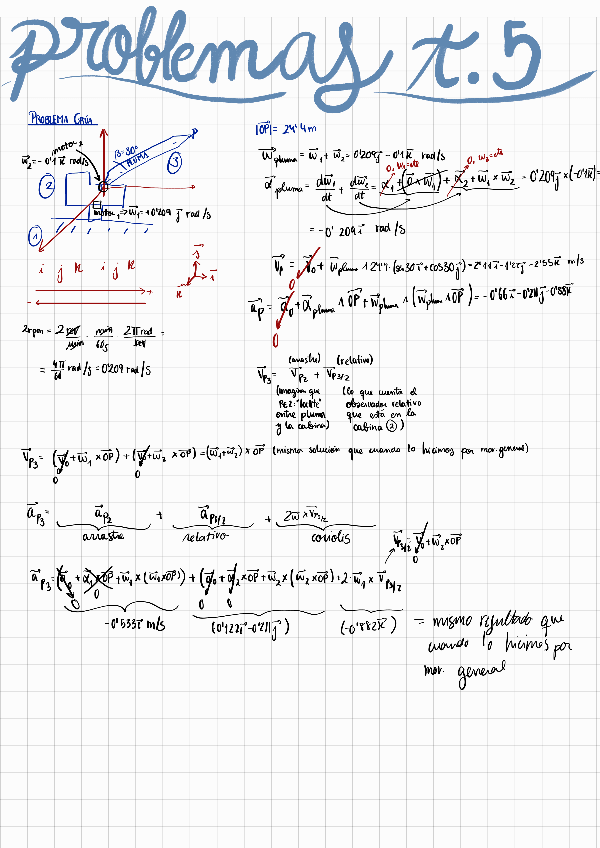 problemas t.5
PROBLEMA GRÚA
motor 2
w⃗₂ = -0'1 k⃗ rad/s
β=30°
PLUMA
③
②
①
motor 1 ⇒ w⃗₁ = 0'209 j⃗ rad/s
i j k i j k
+
-
j⃗
i⃗
k⃗
2rpm = 2 rev/min · min/60s · 2π rad/rev =
= 4π/60 rad/s = 0'209 rad/s
|OP| = 24'4m
w⃗pluma = w⃗₁ + w⃗₂ = 0'209j⃗ - 0'1k⃗ rad/s
0, w₁=cte
0, w₂=cte
α⃗pluma = dw⃗₁/dt + dw⃗₂/dt = α⃗₁ + (0 × w⃗₁) + α⃗₂ + w⃗₁ × w⃗₂ = 0'209j⃗ × (-0'1k⃗) =
= -0'209 i⃗ rad/s
v⃗p = v⃗₀ + w⃗pluma ∧ 24'4 · (sen30 i⃗ + cos30 j⃗) = 2'11i⃗ - 1'22j⃗ - 2'55k⃗ m/s
0
a⃗p = a⃗₀ + α⃗pluma ∧ OP + w⃗pluma ∧ (w⃗pluma ∧ OP) = -0'66i⃗ - 0'211j⃗ - 0'88k⃗
0
(arrastre) (relativo)
v⃗P₃ = v⃗P₂ + v⃗P₃/₂
(imagina que
entre pluma
y la cabina)
(lo que cuenta el
observador relativo
que está en la
cabina ②)
v⃗P₃ = (v⃗₀ + w⃗₁ × OP) + (v⃗₀ + w⃗₂ × OP) = (w⃗₁ + w⃗₂) × OP (misma solución que cuando lo hicimos por mov. general)
0 0
a⃗P₃ = a⃗P₂ + a⃗P₃/₂ + 2w⃗ × v⃗P₃/₂
arrastre relativo coriolis
v⃗₃/₂ = v⃗₀ + w⃗₂ × OP
0
a⃗P₃ = (a⃗₀ + α⃗₁ × OP + w⃗₁ × (w⃗₁ × OP)) + (a⃗₀ + α⃗₂ × OP + w⃗₂ × (w⃗₂ × OP) + 2 · w⃗₁ × v⃗P₃/₂
0 0 0 0
-0'533i⃗ m/s (0'122i⃗ - 0'211j⃗) (-0'882k⃗)
= mismo resultado que
cuando lo hicimos por
mov. general